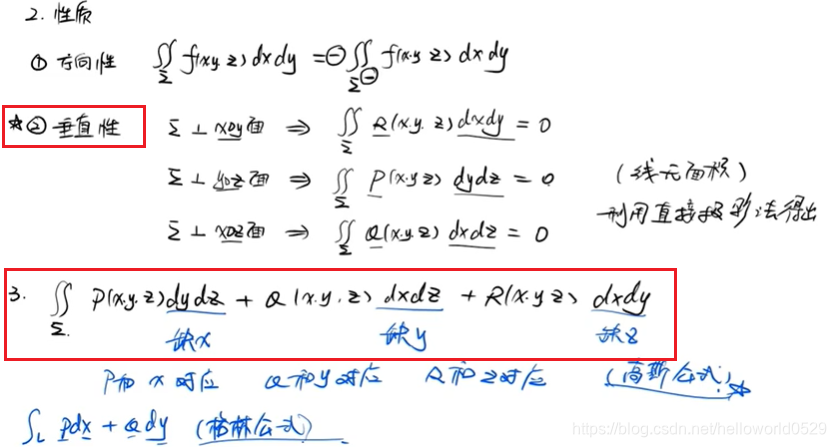 2. 性质
① 方向性 ∬Σ f(x,y,z)dxdy = ⊖∬Σ⊖ f(x,y,z)dxdy
☆② 垂直性 Σ⊥xoy面 ⇒ ∬Σ R(x,y,z)dxdy = 0
Σ⊥yoz面 ⇒ ∬Σ P(x,y,z)dydz = 0 (线无面积)
Σ⊥xoz面 ⇒ ∬Σ Q(x,y,z)dxdz = 0 利用直接投影法得出
3. ∬Σ P(x,y,z)dydz + Q(x,y,z)dxdz + R(x,y,z)dxdy
缺x 缺y 缺z
P和x对应 Q和y对应 R和z对应 (高斯公式)☆
∫L Pdx + Qdy (格林公式)
https://blog.csdn.net/helloworld0529